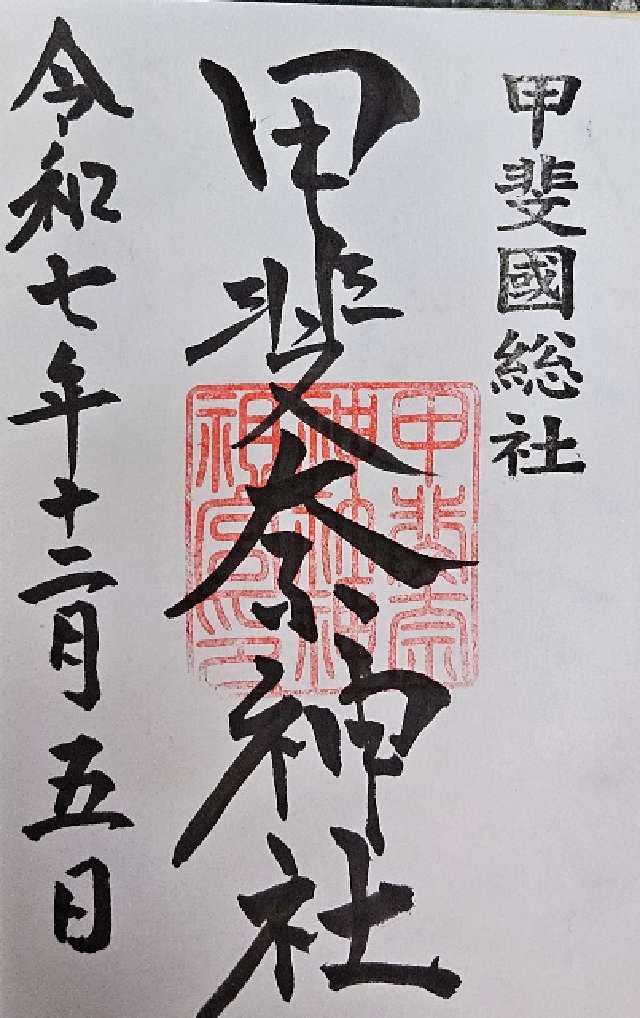 甲斐國総社
甲斐奈神社
甲斐奈神社神祖宮印
令和七年十二月五日